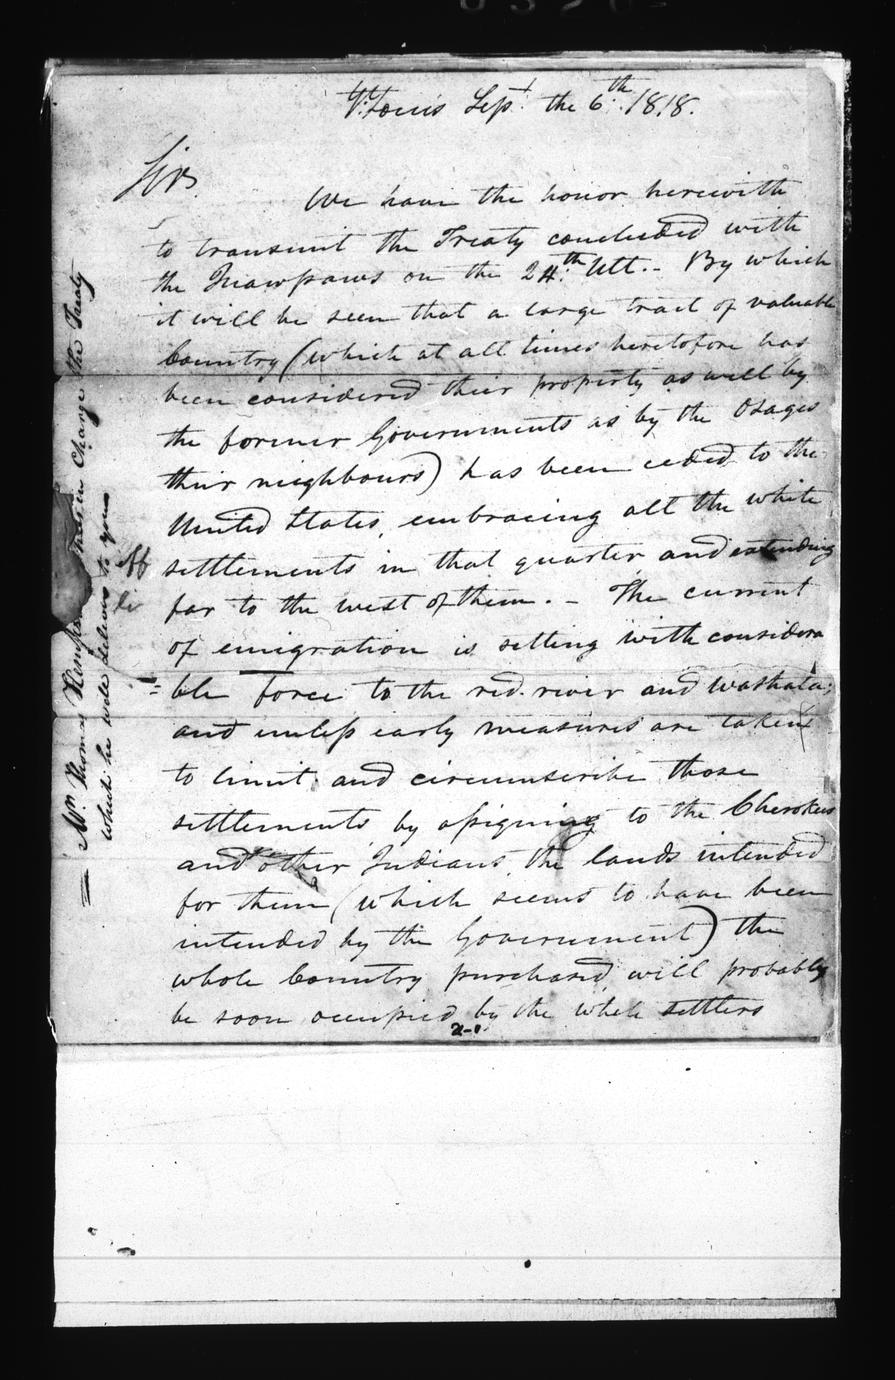 St. Louis Sept. the 6th. 1818.
Sir
We have the honor herewith
to transmit the Treaty concluded with
the Quawpaws on the 24th. Ult.- By which
it will be seen that a large tract of valuable
Country (which at all times heretofore has
been considered their property as well by
the former Governments as by the Osages
their neighbours) has been ceded to the
United States, embracing all the white
settlements in that quarter and extending
far to the west of them. - The current
of emigration is setting with considera
=ble force to the red river and washata;
and unless early measures are taken
to limit and circumscribe those
settlements by assigning to the Cherokees
and other Indians, the lands intended
for them (which seems to have been
intended by the Government) the
whole Country purchased will probably
be soon occupied by the white settlers
Mr. Thomas has in Charge the Treaty
which he will deliver to you